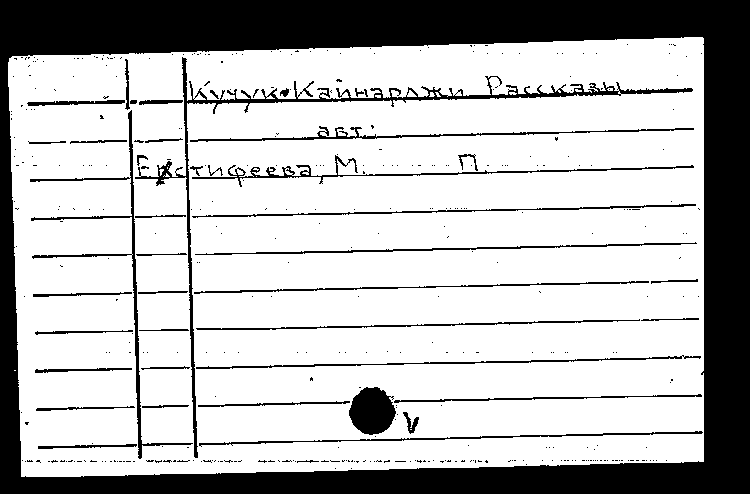 Кучук-Кайнарджи Рассказы
авт.:
Евстифеева, М. П.
V